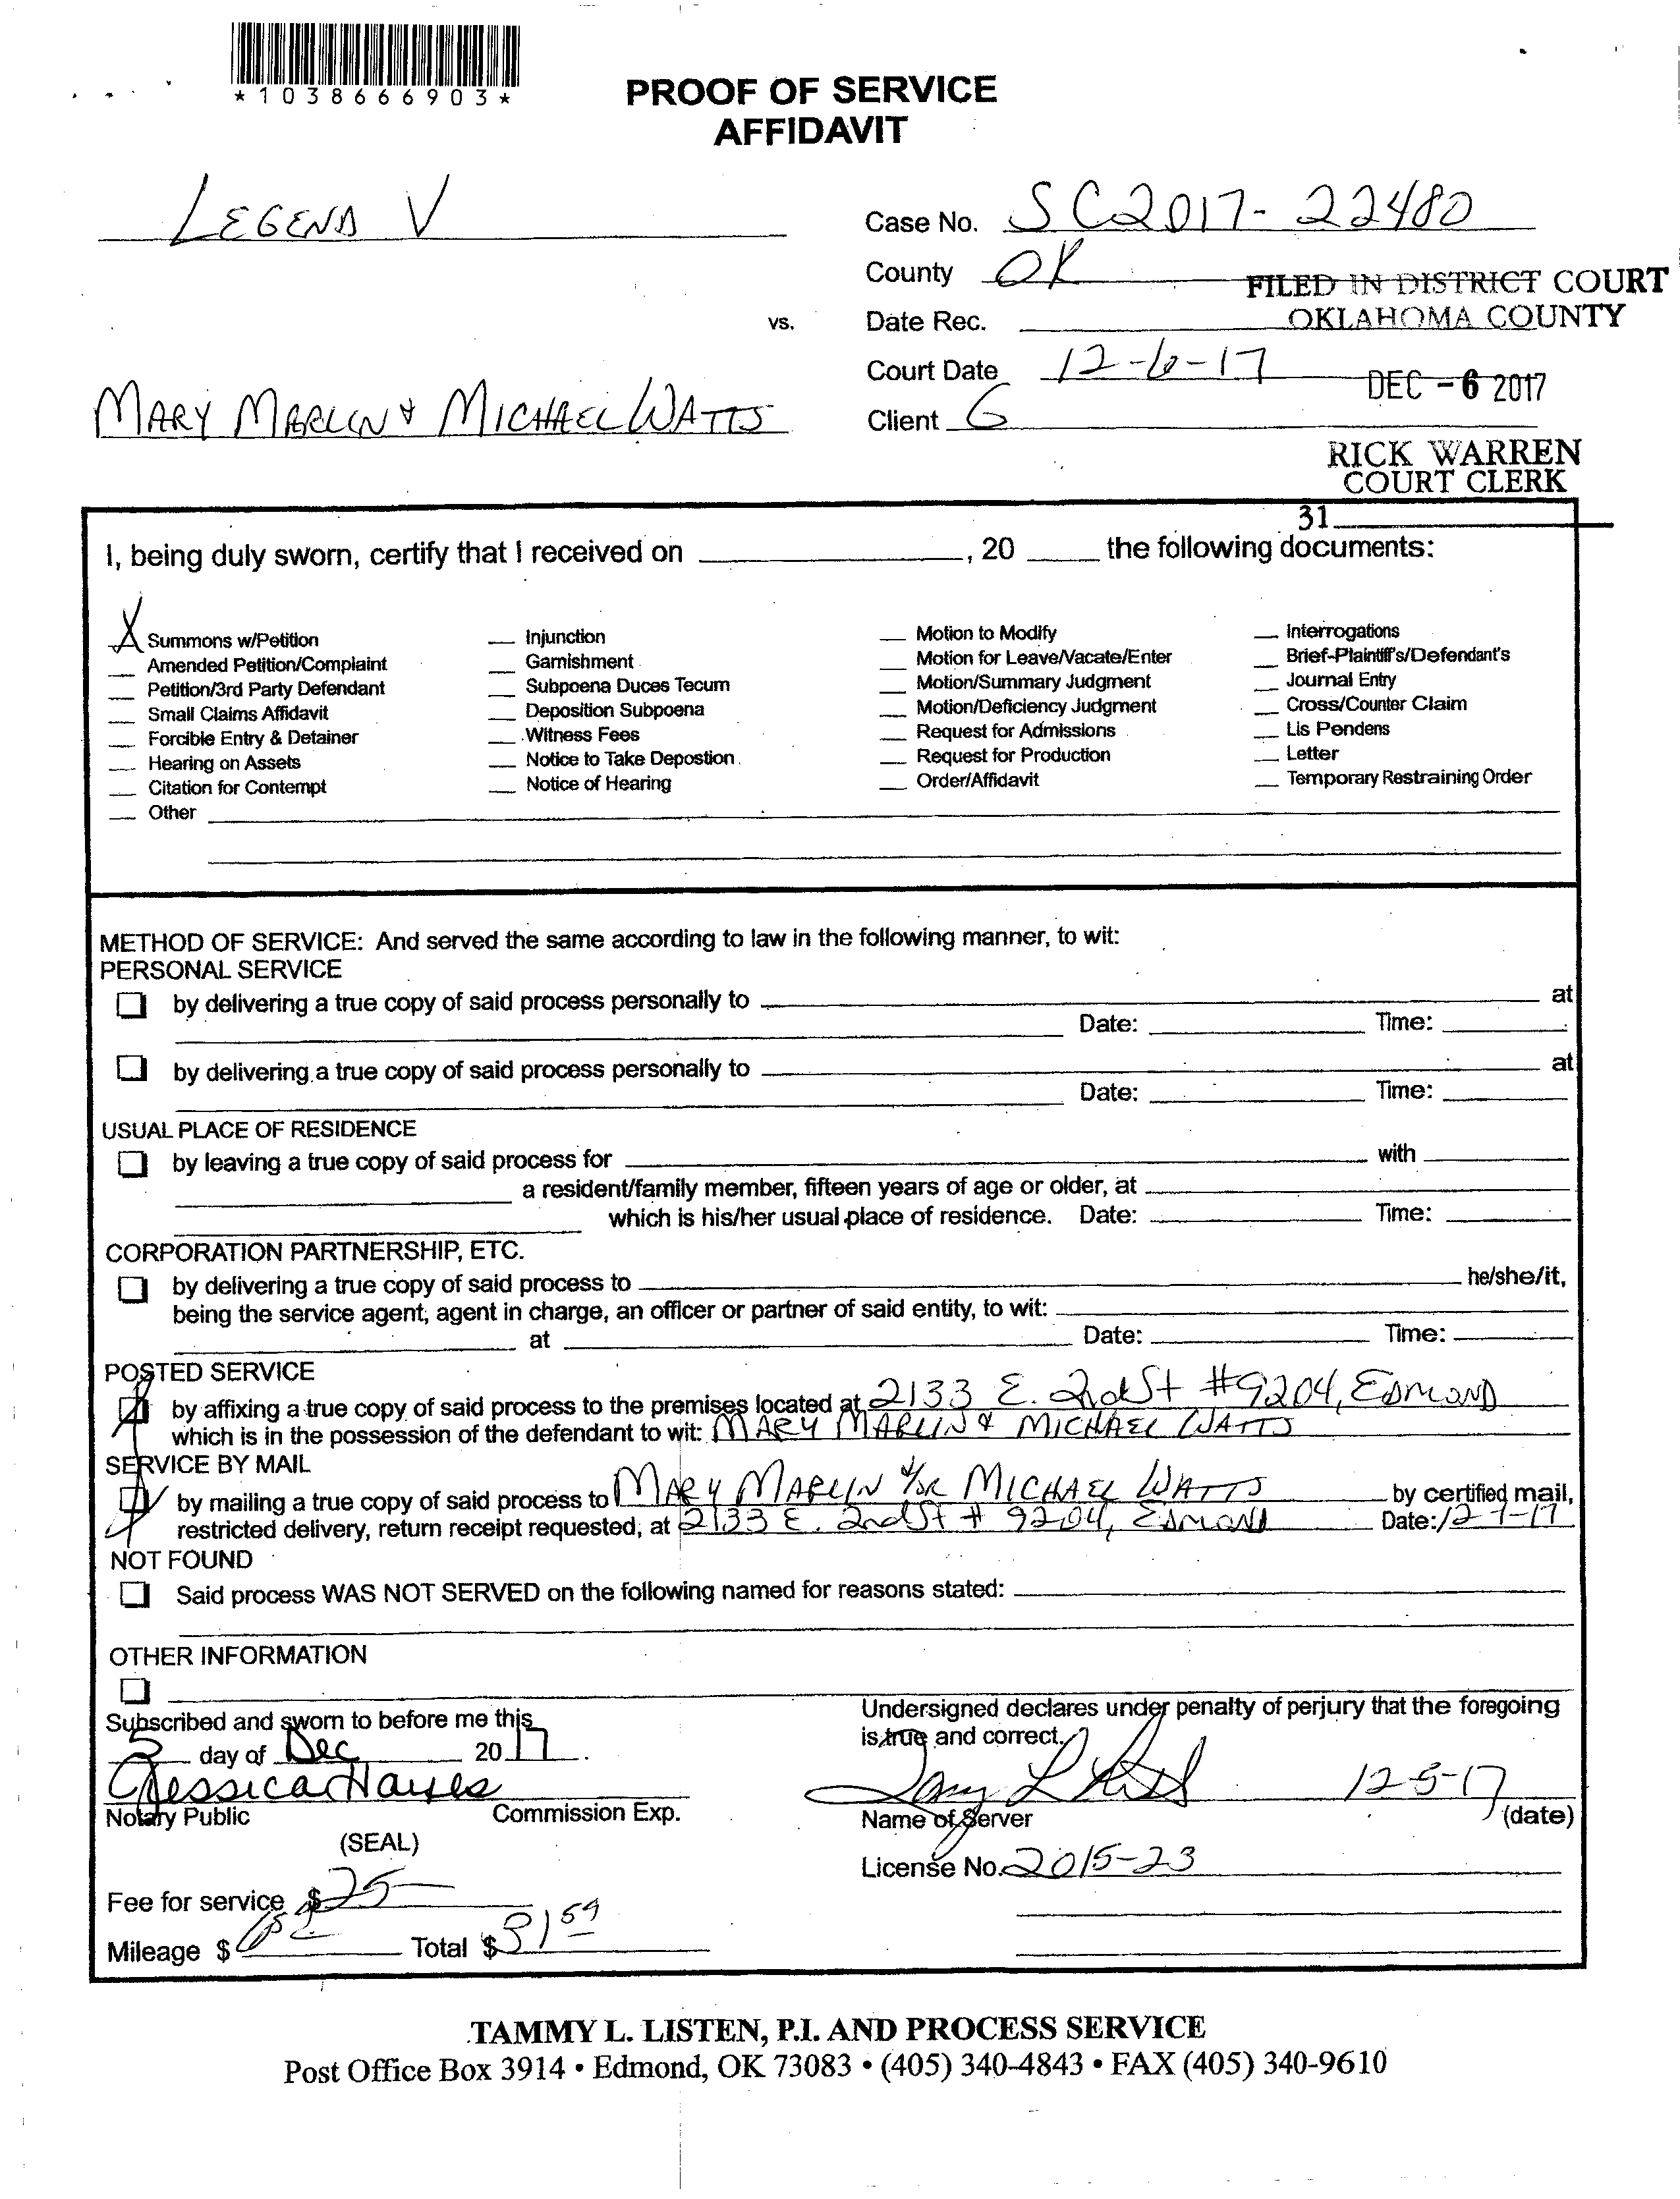 *1038666903*
PROOF OF SERVICE
AFFIDAVIT
LEGEND V
Case No. SC2017-22480
County OK
FILED IN DISTRICT COURT
OKLAHOMA COUNTY
vs.
Date Rec.
Court Date 12-6-17
DEC -6 2017
MARY MARLIN & MICHAEL WATTS
Client G
RICK WARREN
COURT CLERK
31
I, being duly sworn, certify that I received on , 20 the following documents:
X Summons w/Petition
Amended Petition/Complaint
Petition/3rd Party Defendant
Small Claims Affidavit
Forcible Entry & Detainer
Hearing on Assets
Citation for Contempt
Other
Injunction
Garnishment
Subpoena Duces Tecum
Deposition Subpoena
Witness Fees
Notice to Take Depostion
Notice of Hearing
Motion to Modify
Motion for Leave/Vacate/Enter
Motion/Summary Judgment
Motion/Deficiency Judgment
Request for Admissions
Request for Production
Order/Affidavit
Interrogations
Brief-Plaintiff's/Defendant's
Journal Entry
Cross/Counter Claim
Lis Pendens
Letter
Temporary Restraining Order
METHOD OF SERVICE: And served the same according to law in the following manner, to wit:
PERSONAL SERVICE
by delivering a true copy of said process personally to at
Date: Time:
by delivering a true copy of said process personally to at
Date: Time:
USUAL PLACE OF RESIDENCE
by leaving a true copy of said process for with
a resident/family member, fifteen years of age or older, at
which is his/her usual place of residence. Date: Time:
CORPORATION PARTNERSHIP, ETC.
by delivering a true copy of said process to he/she/it,
being the service agent, agent in charge, an officer or partner of said entity, to wit:
at Date: Time:
POSTED SERVICE
by affixing a true copy of said process to the premises located at 2133 E. 2nd St #9204, EDMOND
which is in the possession of the defendant to wit: MARY MARLIN & MICHAEL WATTS
SERVICE BY MAIL
by mailing a true copy of said process to MARY MARLIN &/OR MICHAEL WATTS by certified mail,
restricted delivery, return receipt requested, at 2133 E. 2nd St # 9204, EDMOND Date: 12-1-17
NOT FOUND
Said process WAS NOT SERVED on the following named for reasons stated:
OTHER INFORMATION
Subscribed and sworn to before me this
5 day of Dec 2017.
Jessica Hayes
Notary Public Commission Exp.
(SEAL)
Fee for service $ 25
Mileage $ Total $ 31 59
Undersigned declares under penalty of perjury that the foregoing
is true and correct.
12-5-17
Name of Server (date)
License No. 2015-23
TAMMY L. LISTEN, P.I. AND PROCESS SERVICE
Post Office Box 3914 • Edmond, OK 73083 • (405) 340-4843 • FAX (405) 340-9610